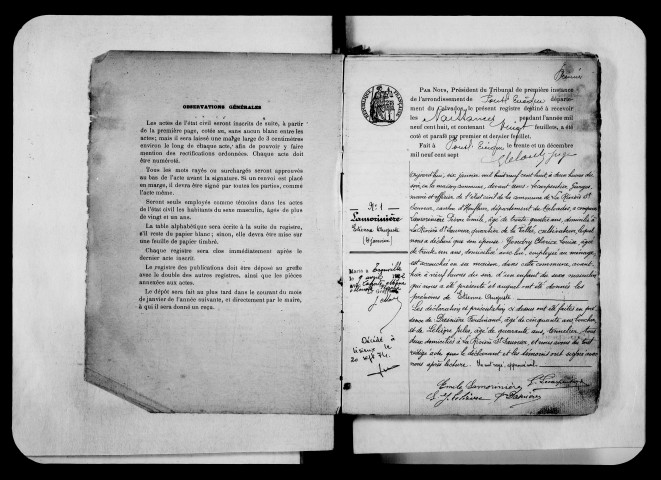 OBSERVATIONS GÉNÉRALES
Les actes de l'état civil seront inscrits de suite, à partir
de la première page, cotée un, sans aucun blanc entre les
actes; mais il sera laissé une marge large de 3 centimètres
environ le long de chaque acte, afin de pouvoir y faire
mention des rectifications ordonnées. Chaque acte doit
être numéroté.
Tous les mots rayés ou surchargés seront approuvés
au bas de l'acte avant la signature. Si un renvoi est placé
en marge, il devra être signé par toutes les parties, comme
l'acte même.
Seront seuls employés comme témoins dans les actes
de l'état civil les habitants du sexe masculin, âgés de plus
de vingt et un ans.
La table alphabétique sera écrite à la suite du registre,
s'il reste du papier blanc; sinon, elle devra être mise sur
une feuille de papier timbré.
Chaque registre sera clos immédiatement après le
dernier acte inscrit.
Le registre des publications doit être déposé au greffe
avec le double des autres registres, ainsi que les pièces
annexées aux actes.
Le dépôt sera fait au plus tard dans le courant du mois
de janvier de l'année suivante, et directement par le maire,
à qui il sera donné un reçu.
Premier
PAR NOUS, Président du Tribunal de première instance
de l'arrondissement de Pont-l'Évêque départe-
ment du Calvados, le présent registre destiné à recevoir
les Naissances pendant l'année mil
neuf cent huit, et contenant Vingt feuillets, a été
coté et paraphé par premier et dernier feuillet.
Fait à Pont-l'Évêque le trente et un décembre
mil neuf cent sept
N° 1
Lamorinière
Etienne Auguste
(6 Janvier)
Marié à
Décédé à
Lisieux le
20 sept 74.
Aujourd'hui, six janvier mil neuf cent huit à deux heures du
soir, en la maison commune, devant nous
maire et officier de l'état civil de la commune de La Rivière St
Sauveur, canton d'Honfleur, département du Calvados, a comparu
Lamorinière Emile, âgé de trente quatre ans, domicilié à
La Rivière St Sauveur, quartier de la cultivateur, lequel
nous a déclaré que son épouse Louise, âgée
de trente ans, domiciliée avec lui, employée au ménage
est accouchée en sa maison, dans cette commune,
hier à neuf heures du soir d'un enfant du sexe masculin
qui nous a été présenté et auquel ont été donnés les
prénoms de Etienne Auguste.
Les déclaration et présentation ci dessus ont été faites en pré-
sence de Ferdinand, âgé de cinquante ans,
et de Jules, âgé de quarante ans, tonnelier, tous
deux domiciliés à La Rivière St Sauveur, et nous avons du tout
rédigé acte que le déclarant et les témoins ont signé avec
nous après lecture.
Emile Lamorinière